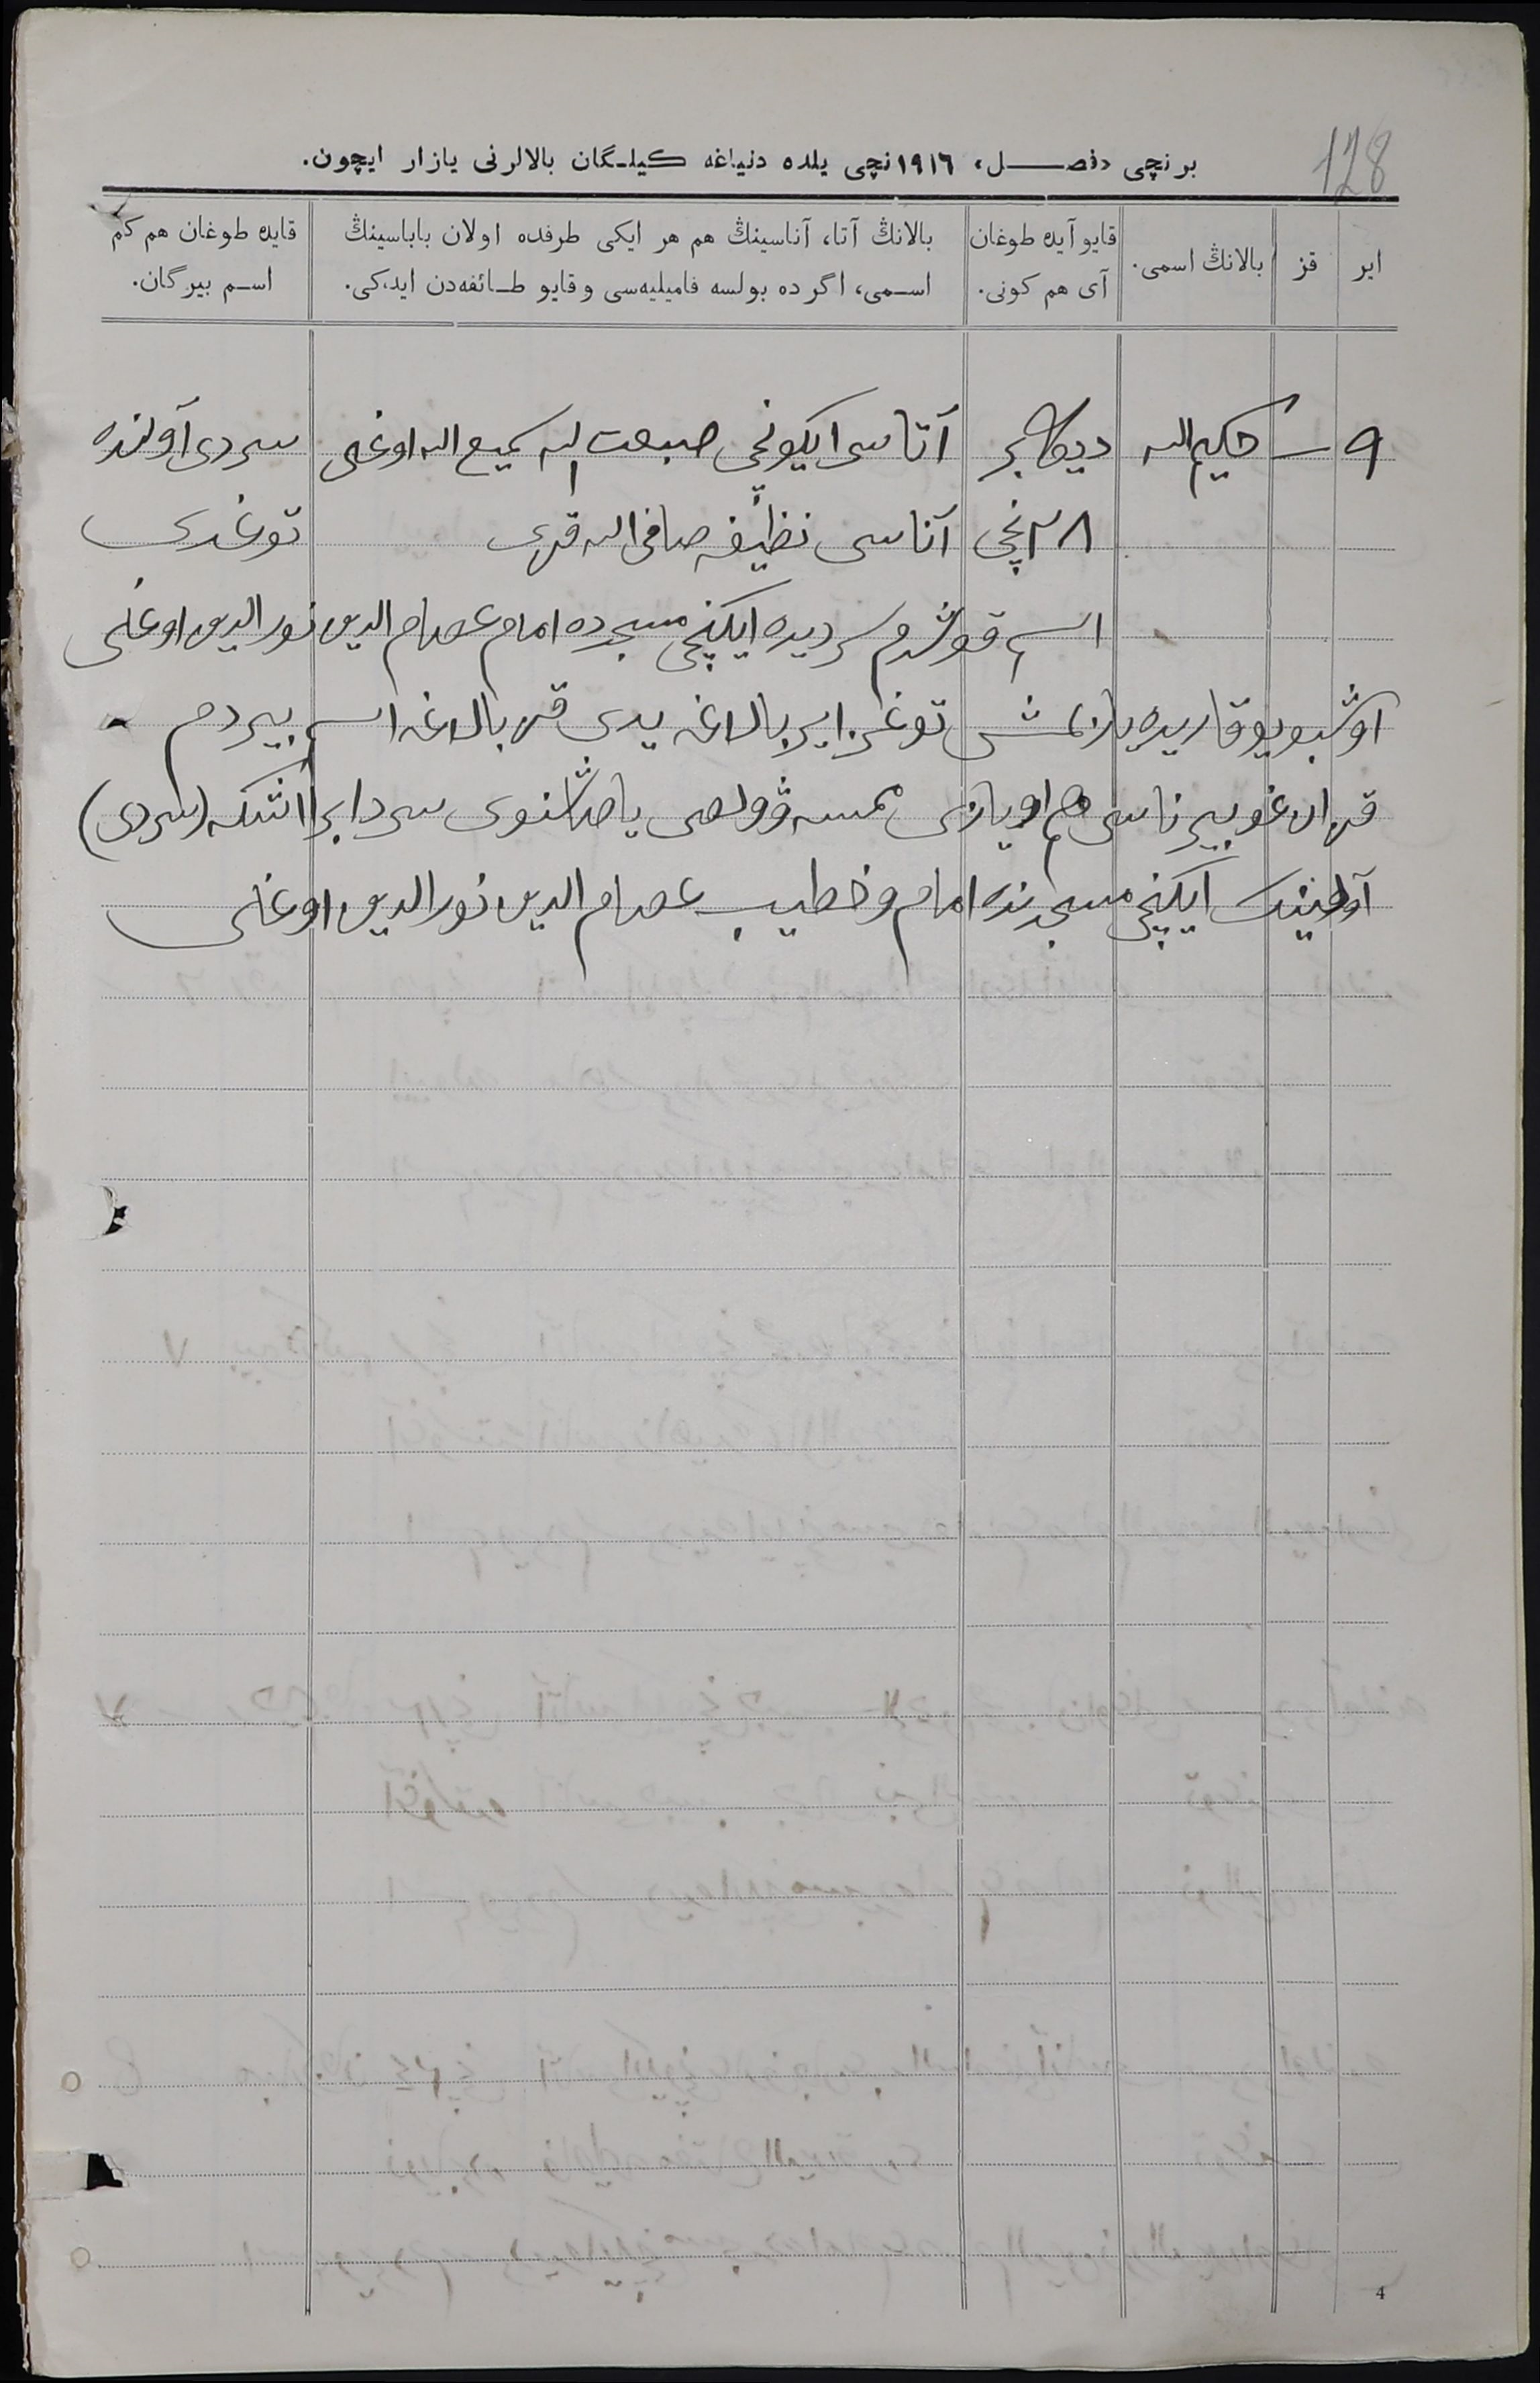 128
برنچی «فصل»، ١٩١٦نچی یلده دنیاغه کیلگان بالالرنی یازار ایچون.
ایر
قز
بالانڭ اسمی.
قایو آیده طوغان
آی هم کونی.
بالانڭ آتا، آناسینڭ هم هر ایکی طرفده اولان باباسینڭ
اسمی، اگر ده بولسه فامیلیه‌سی و قایو طائفه‌دن ایدکی.
قایده طوغان هم کم
اسم بیرگان.
٩ — حکیم الله دیکابر آتاسی ایکونچی صبغت الله سمیع الله اوغلی سردی آولنده
٢٨نچی آناسی نظیفه صافی الله قزی توغدی
اسم قوشدم سردیده ایکنچی مسجدده امام عصام الدین نورالدین اوغلی
اوشبو یوقاریده یازلمش توغز ایر بالاغه یدی قز بالاغه اسم بیردم
قزان غوبیرناسی هم اویازی وولصی سردا (سردی)
آولینڭ ایکنچی مسجدنده امام و خطیب عصام الدین نورالدین اوغلی
4